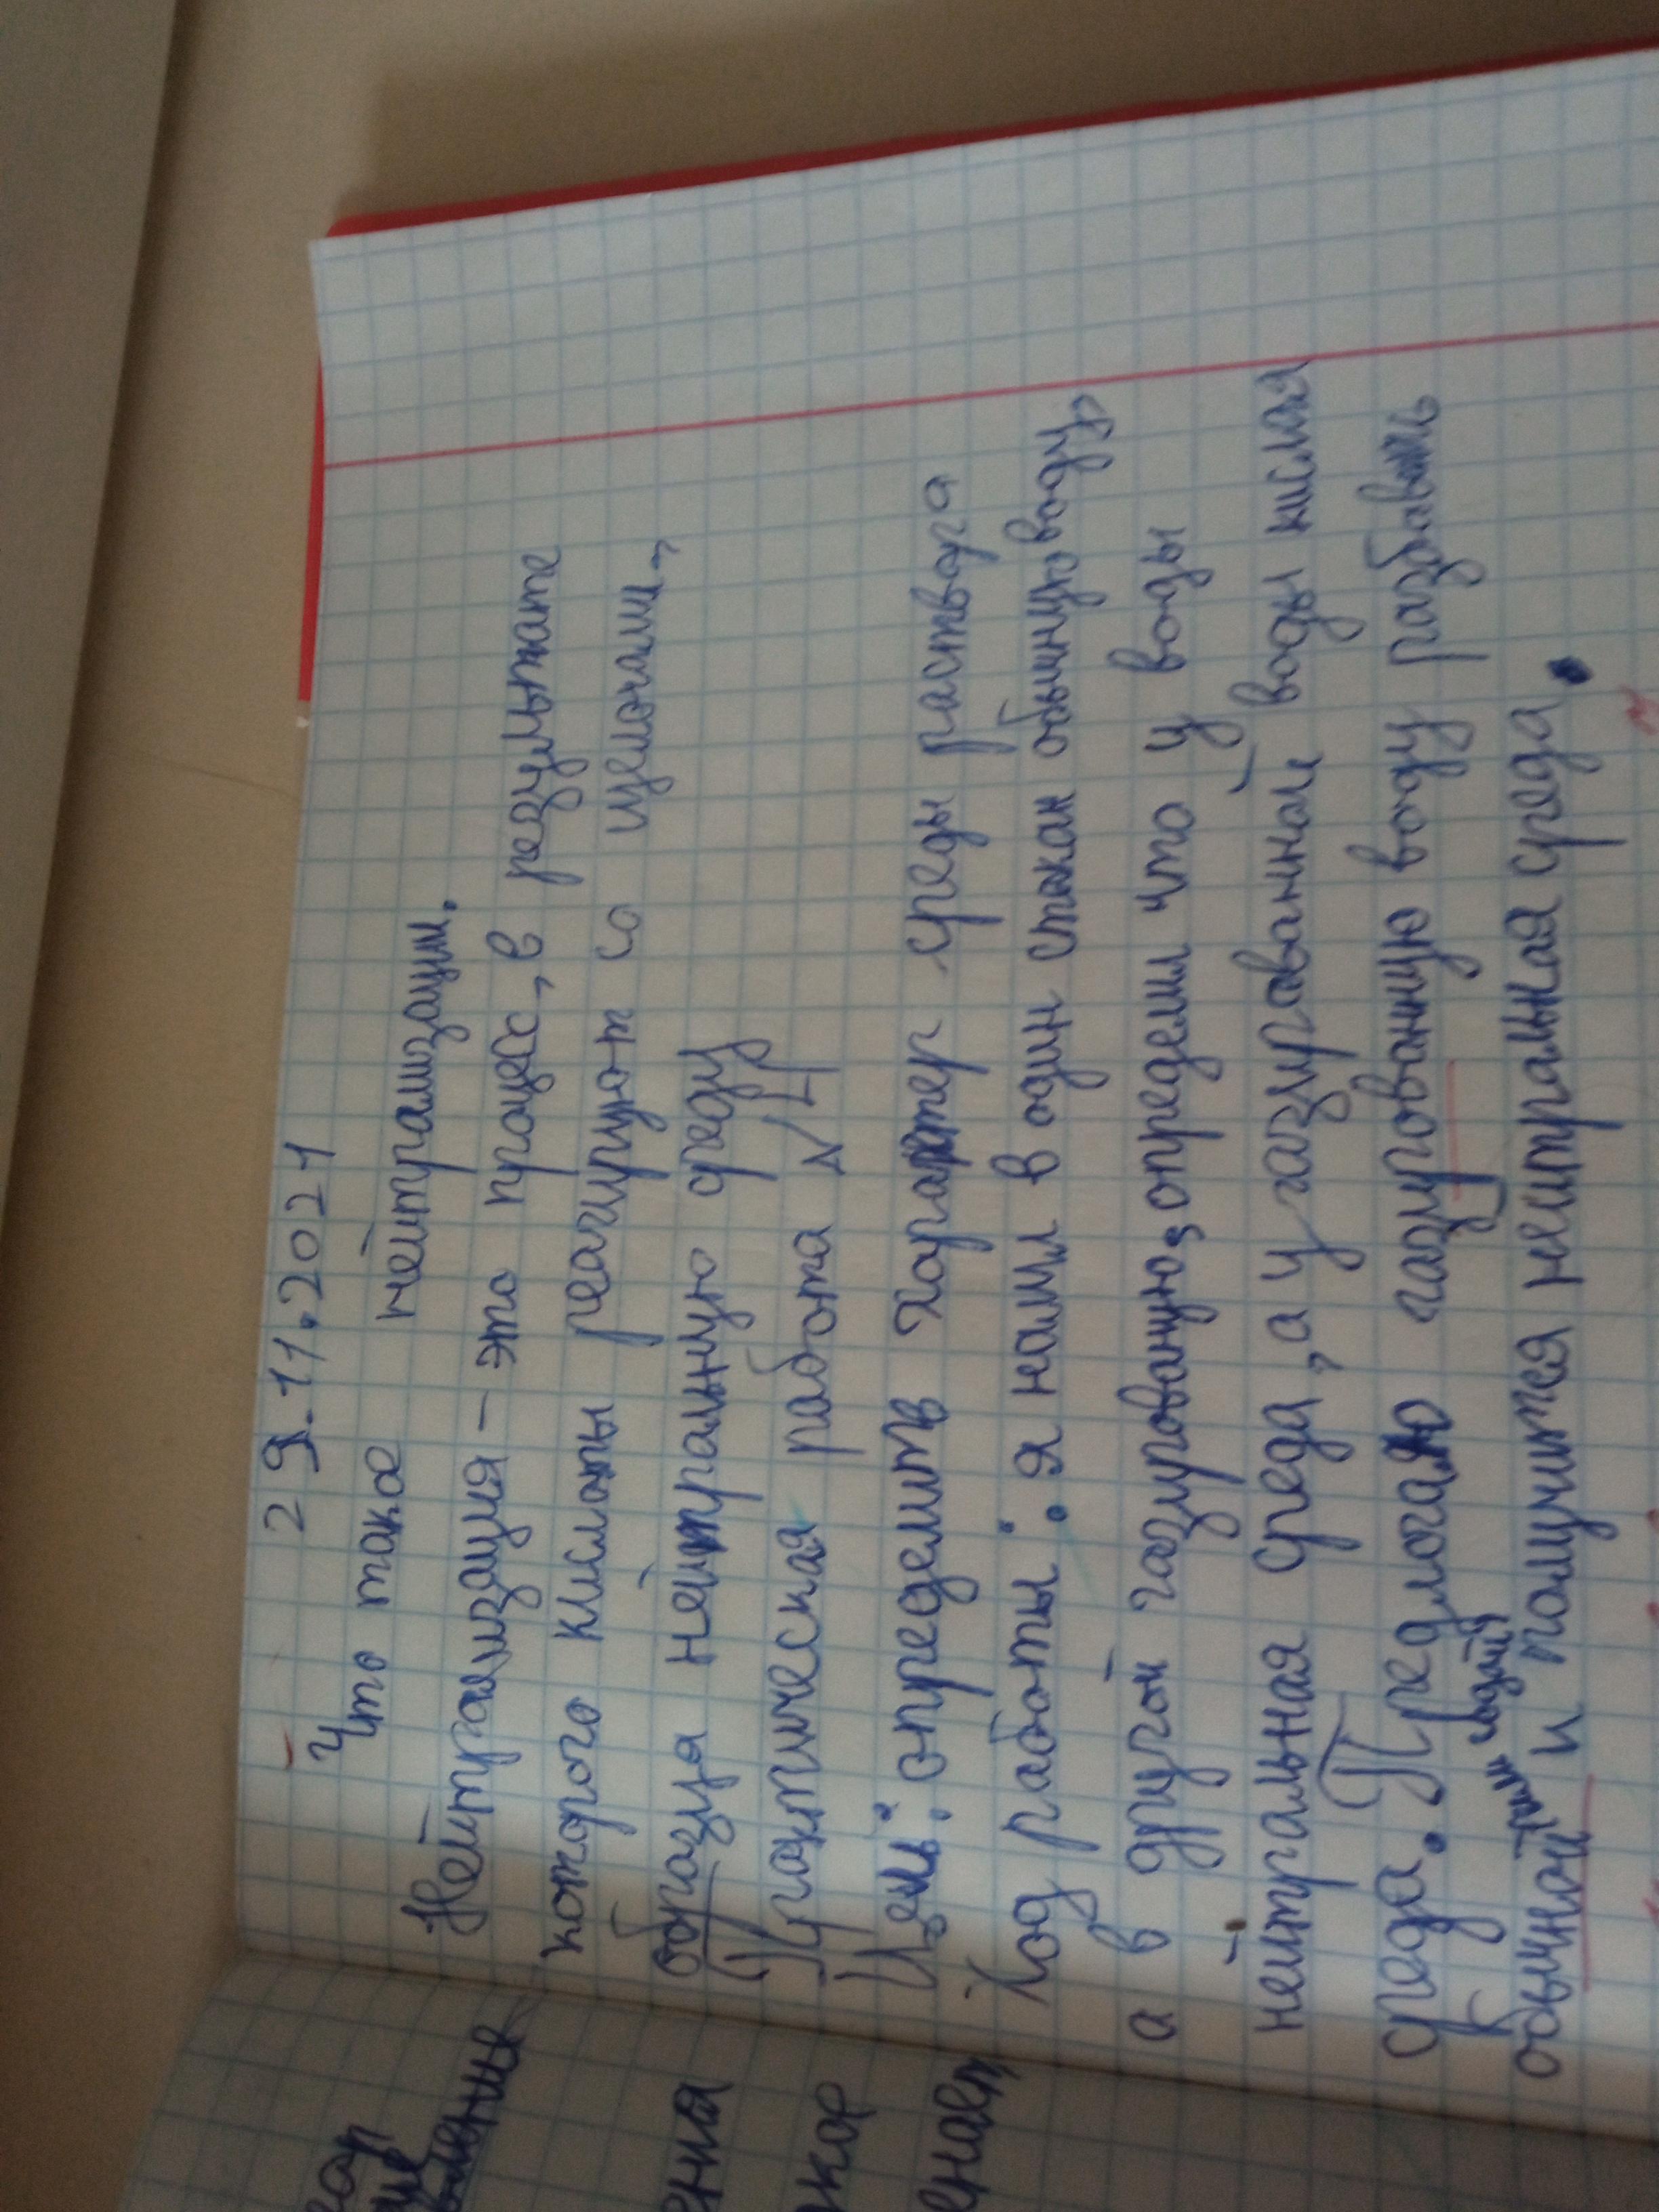 29.11.2021
Что такое нейтрализации.
Нейтрализация - это процесс, в результате
которого кислоты реагируют со щелочами,
образуя нейтральную среду
Практическая работа №4
Цель: определить характер среды раствора
Ход работы: я налил в один стакан обычную воду,
а в другой газированую, определил что у воды
нейтральная среда, а у газированной воды кислая
среда. Предлогаю газированную воду разбавить
обычной и получится нейтральная среда.
ения
жое
енает